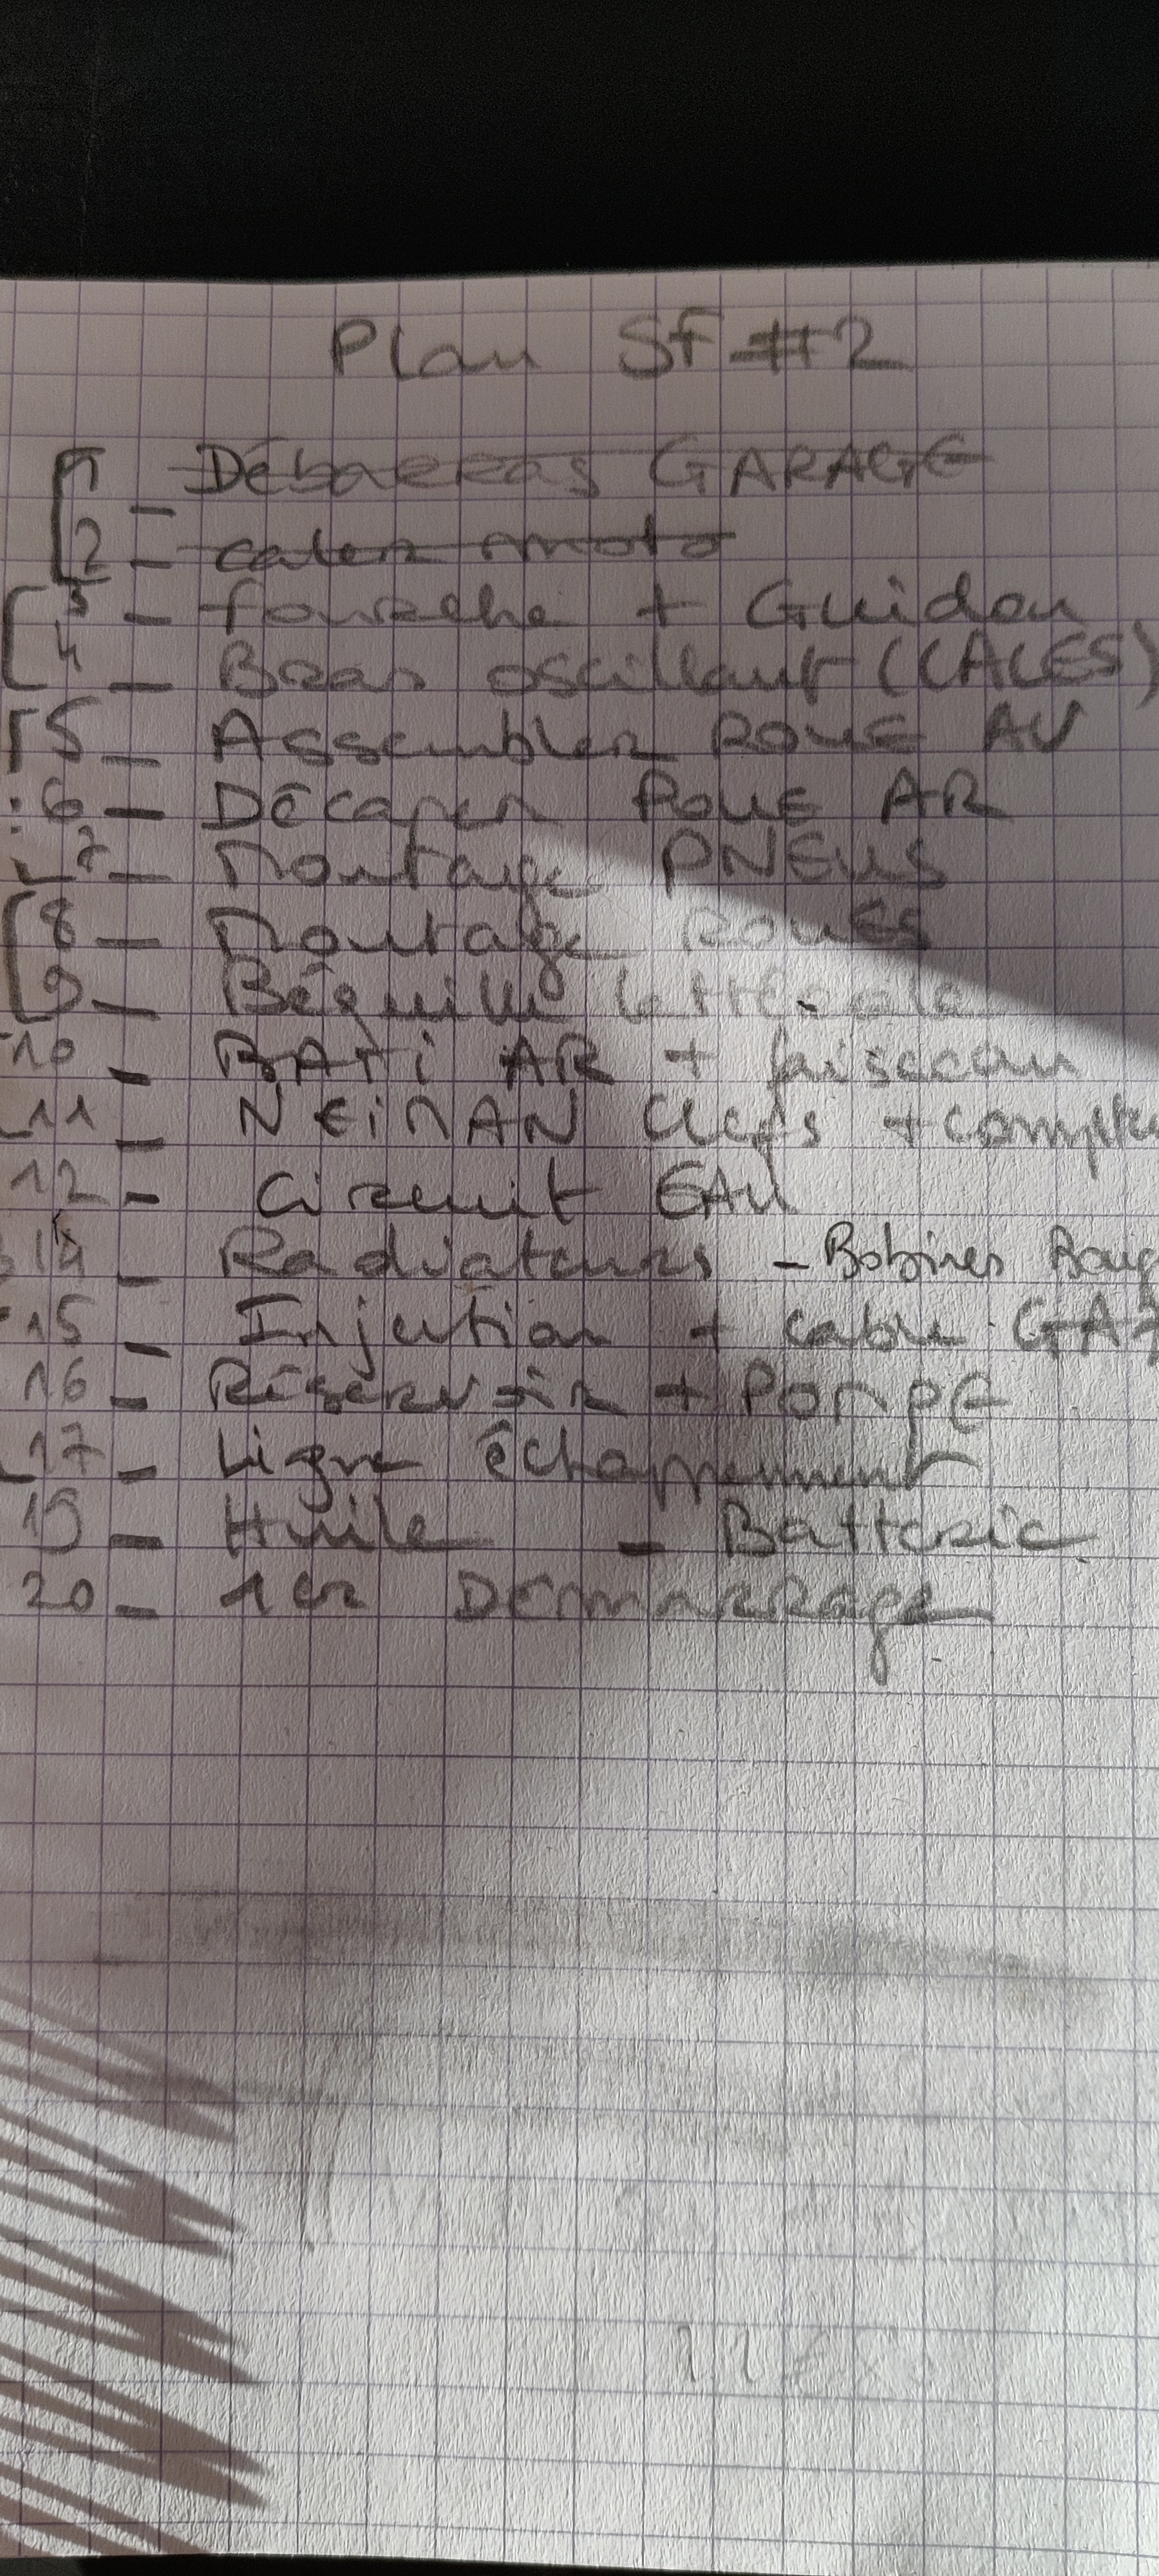 Plan SF #2
1 - Débarras GARAGE
2 - caler moto
3 - fourche + Guidon
4 - Bras oscillant (CALES)
5 - Assembler ROUE AV
6 - Décaper ROUE AR
7 - Montage PNEUS
8 - Montage ROUES
9 - Béquille lattérale
10 - BATi AR + faisceau
11 - NEiMAN Clefs + compteu
12 - Circuit EAU
14 - Radiateurs - Bobines Boug
15 - Injection + cable GAZ
16 - Réservoir + POMPE
17 - Ligne échappement
19 - Huile - Batterie
20 - 1er DÉMARRAGE